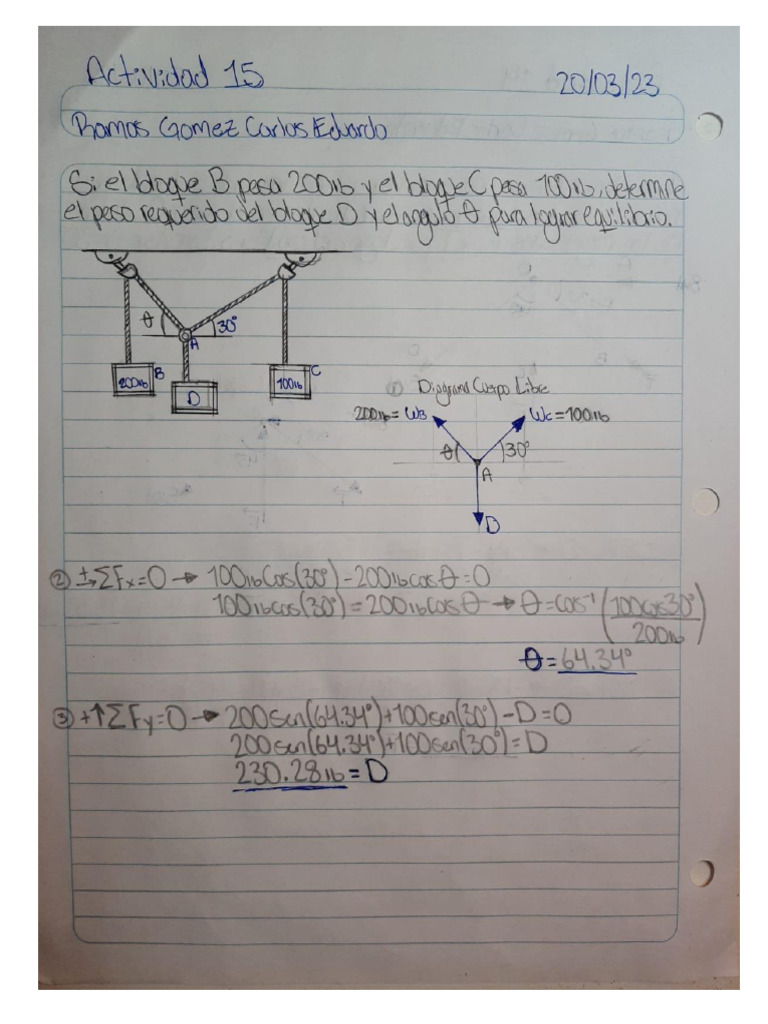 Actividad 15
20/03/23
Ramos Gomez Carlos Eduardo
Si el bloque B pesa 200lb y el bloque C pesa 100lb, determine
el peso requerido del bloque D y el angulo θ para lograr equilibrio.
θ
30°
A
200lb
B
D
100lb
C
① Diagrama Cuerpo Libre
200lb = WB
Wc = 100lb
θ
30°
A
D
② +→ ΣFx=0 → 100lb Cos(30°) - 200lb cos θ = 0
100lb cos(30°) = 200lb cos θ → θ = cos⁻¹ (100cos30° / 200lb)
θ = 64.34°
③ +↑ ΣFy=0 → 200sen(64.34°)+100sen(30°) - D = 0
200sen(64.34°)+100sen(30°) = D
230.28lb = D